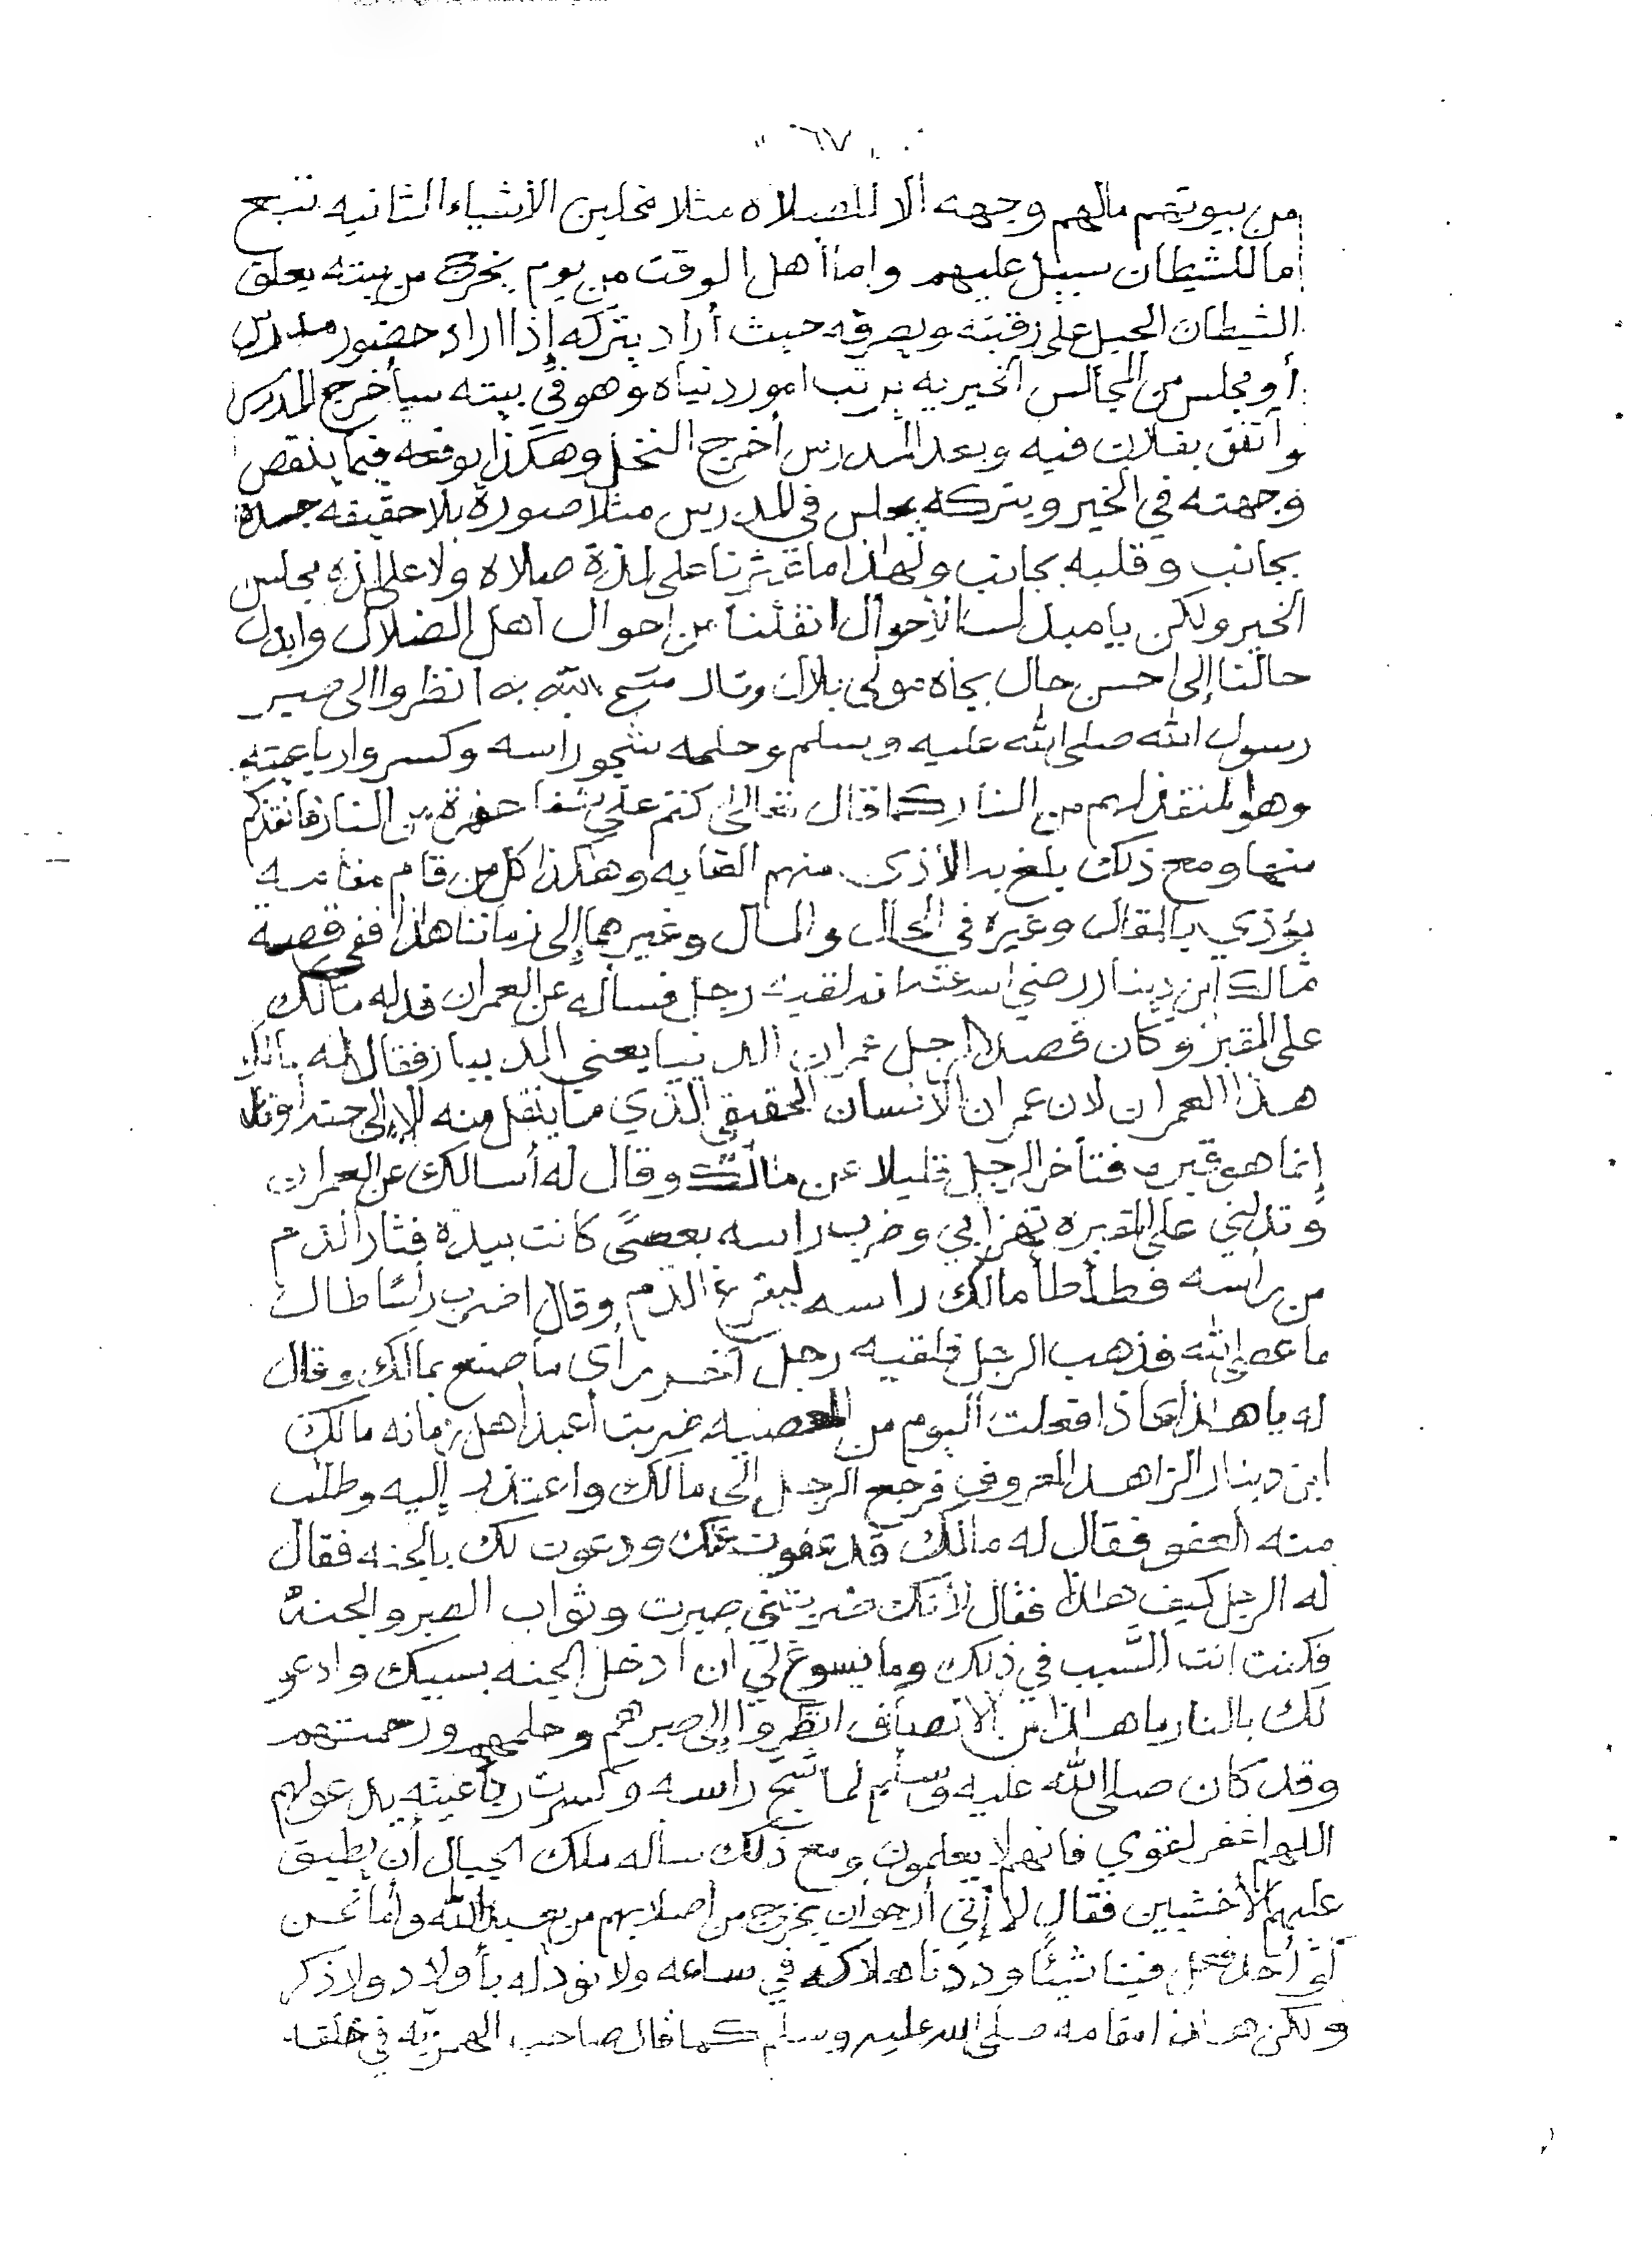 ٦٧
من بيوتهم مالهم وجهه ألا للصلاه مثلا مخلين الأشياء الثانيه تتبع
ما للشيطان سبيل عليهم واما أهل الوقت من يوم يخرج من بيته يعلق
الشيطان الحبل على رقبته ويصرفه حيث أراد يتركه إذا اراد حضور مدرس
أو مجلس من المجالس الخيريه يرتب امور دنياه وهو في بيته سيأخرج المدرس
وأتفق بفلان فيه وبعد المدرس أخرج النخل وهكذا يوقعه فيما ينقص
وجهته في الخير ويتركه يجلس في المدرس مثلا صورة بلا حقيقه جسده
بجانب وقلبه بجانب ولهذا ما عثرنا على لذة صلاه ولا على لذه مجلس
الخير ولكن يا مبدل الأحوال انقلنا من احوال أهل الضلال وابدل
حالنا إلى احسن حال بجاه مولى بلال وقال متع الله به انظروا الى صبر
رسول الله صلى الله عليه وسلم وحلمه شجو راسه وكسروا رباعيته
وهو المنقذ لهم من النار كما قال تعالى كنتم على شفا حفرة من النار فانقذكم
منها ومع ذلك بلغ به الأذى منهم الغايه وهكذا كل من قام مقامه
يؤذي بالمقال وغيره في الحال والمال وغيرهما إلى زماننا هذا ففي قصة
مالك ابن دينار رضي الله عنه انه لقيه رجل فساله عن العمران فدله مالك
على المقبره وكان قصد الرجل عمران الدنيا يعني الديار فقال له مالك
هذا العمران لان عمران الأنسان الحقيقي الذي ما ينقل منه إلا إلى جنه أو نار
إنما هو قبره فتأخر الرجل قليلا عن مالك وقال له أسالك عن العمران
وتدلني على المقبره تهزأ بي وضرب راسه بعصى كانت بيده فثار الدم
من راسه فطأطأ مالك راسه ليفرغ الدم وقال اضرب رأسًا طال
ما عصى الله فذهب الرجل فلقيه رجل آخر رأى ما صنع بمالك وقال
له يا هذا ماذا فعلت اليوم من المعصيه ضربت أعبد أهل زمانه مالك
ابن دينار الزاهد المعروف فرجع الرجل إلى مالك واعتذر إليه وطلب
منه العفو فقال له مالك قد عفوت عنك ودعوت لك بالجنه فقال
له الرجل كيف هذا فقال لأنك ضربتني صبرت وثواب الصبر والجنة
فكنت انت السَّبب في ذلك وما يسوغ لي أن أدخل الجنه بسببك وادعو
لك بالنار ما هذا من الانصاف انظروا إلى صبرهم وحلمهم ورحمتهم
وقد كان صلى الله عليه وسلم لما شج راسه وكسرت رباعيته يدعو لهم
اللهم اغفر لقومي فانهم لا يعلمون ومع ذلك ساله ملك الجبال أن يطبق
عليهم الأخشبين فقال لا إني أرجو أن يخرج من أصلابهم من يعبد الله وأما نحن
لو أحد فعل فينا شيئًا وددنا هلاكه في ساعه ولا نود له بأولاد ولا ذكر
ولكن هذا مقامه صلى الله عليه وسلم كما قال صاحب الهمزيه في خلقه